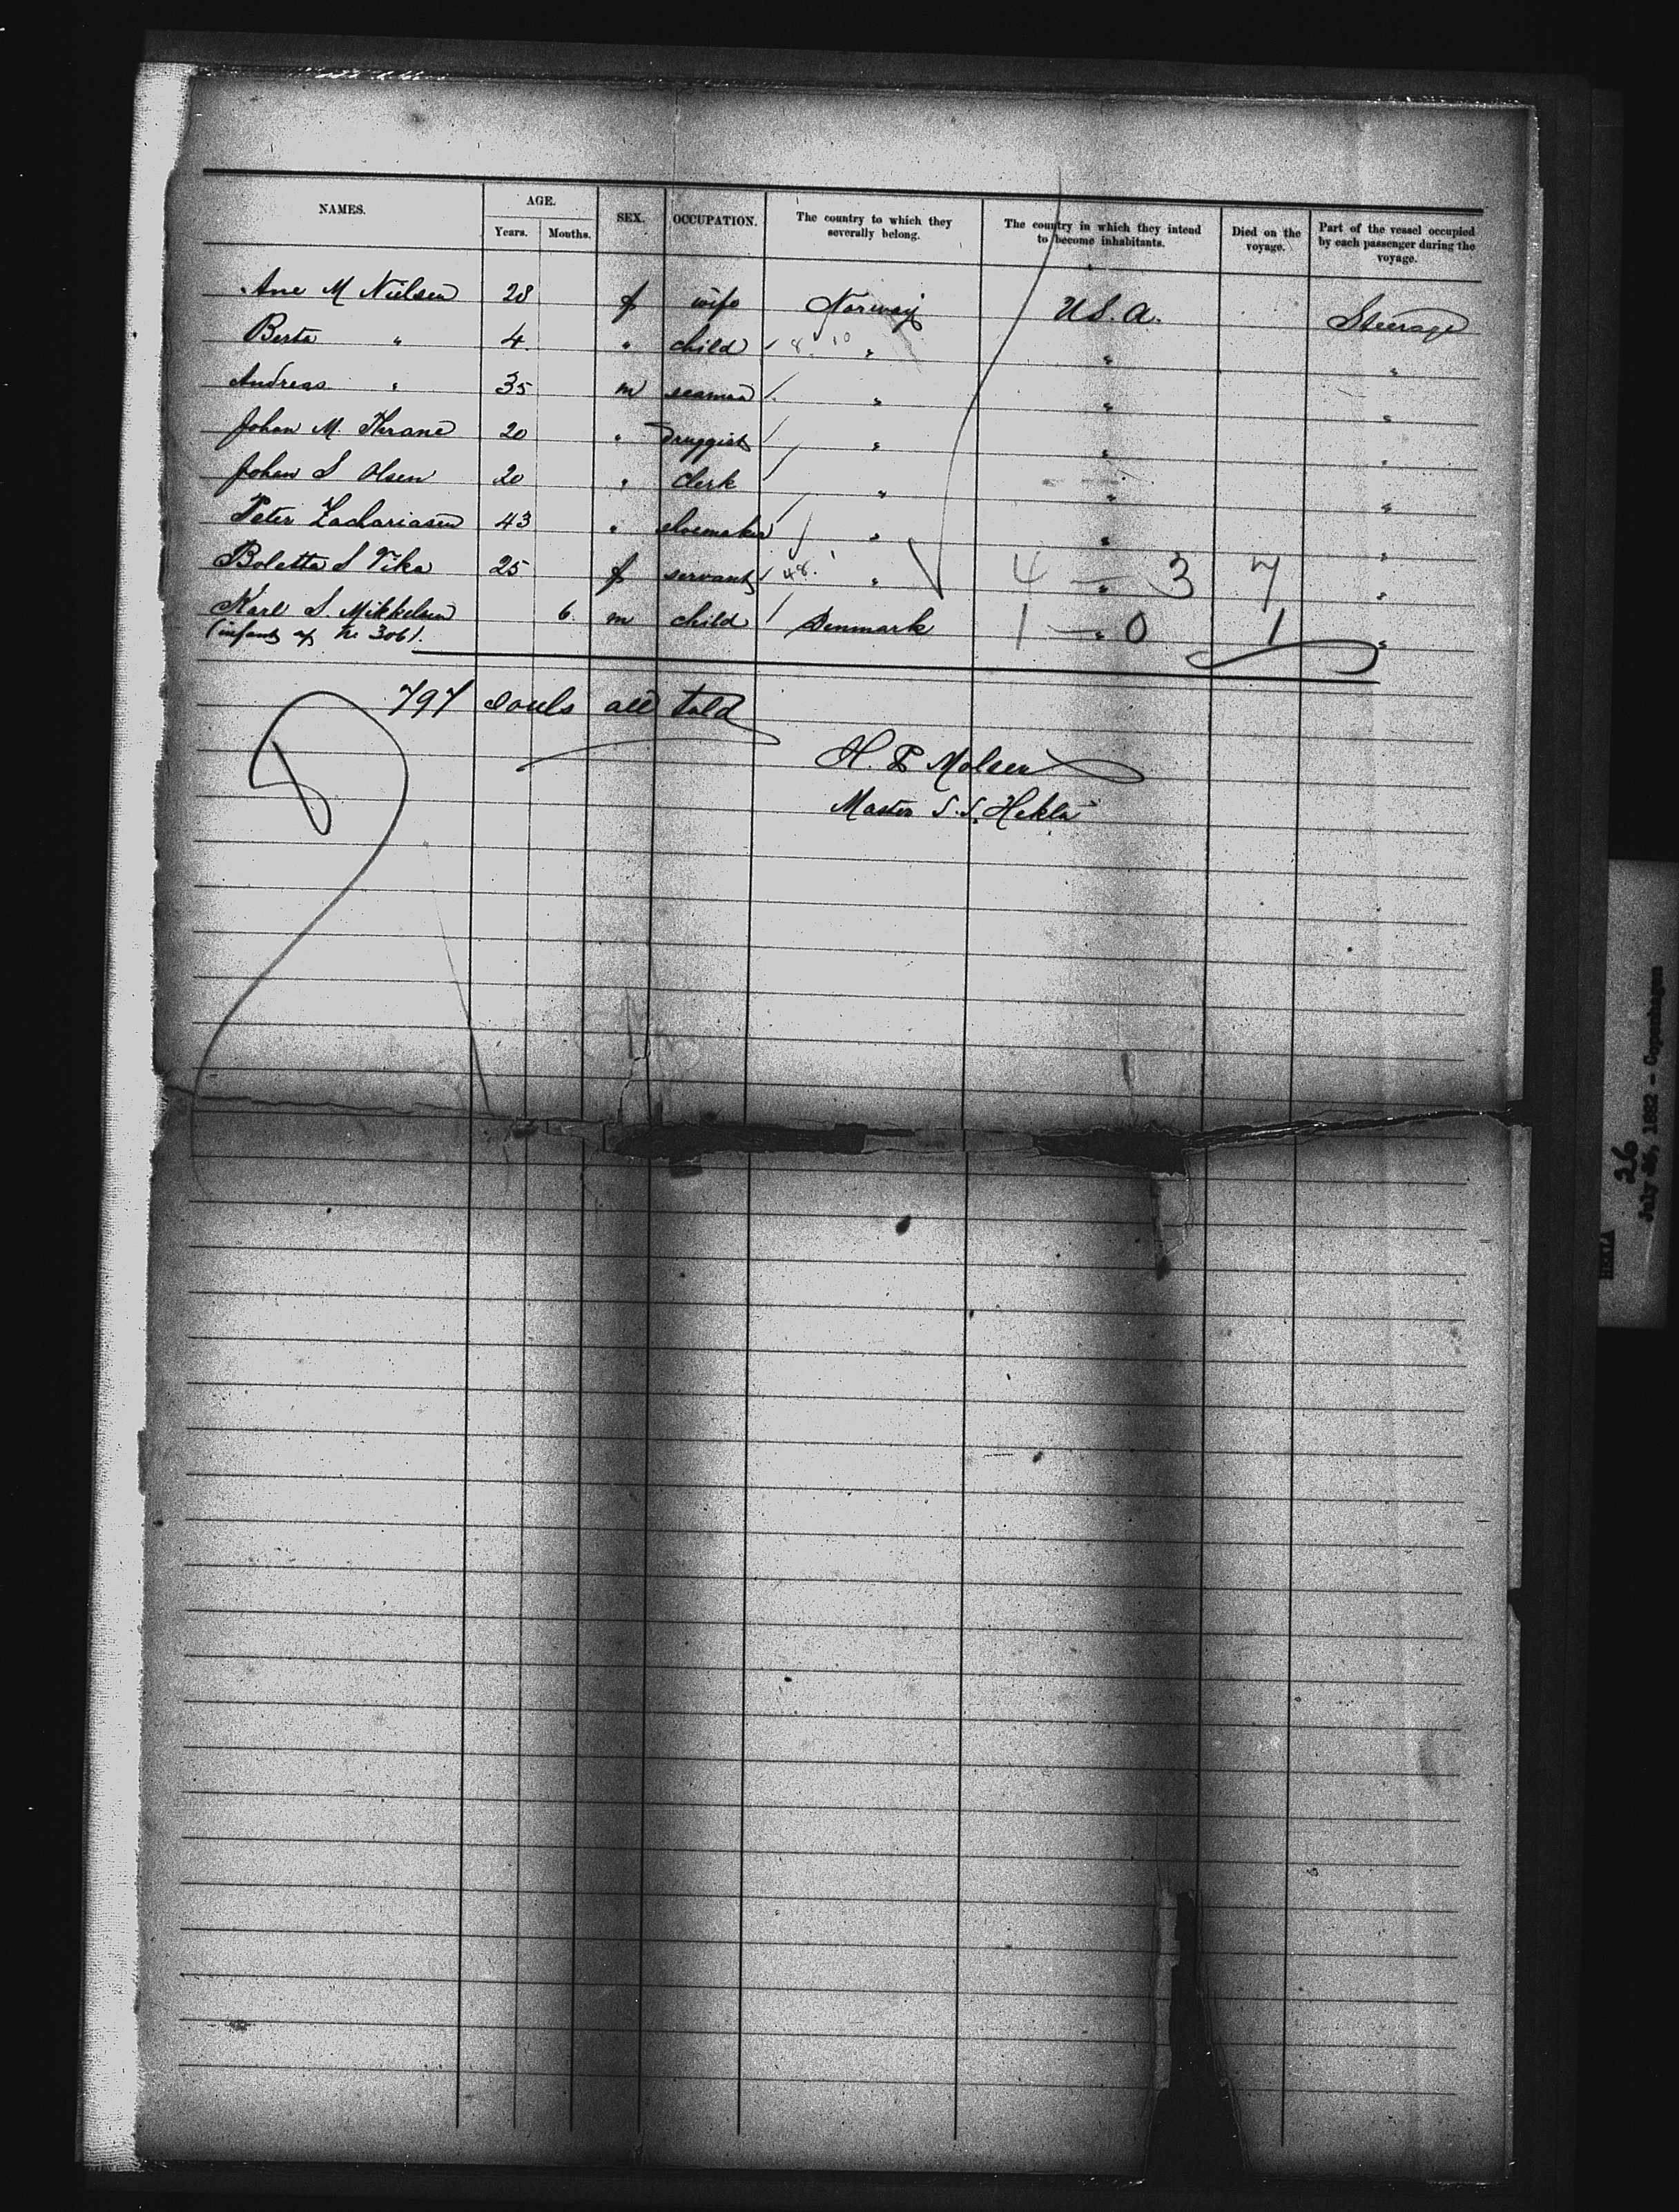 NAMES. AGE. SEX. OCCUPATION. The country to which they severally belong. The country in which they intend to become inhabitants. Died on the voyage. Part of the vessel occupied by each passenger during the voyage.
Years. Months.
Ane M Nielsen 28 f wife Norway U.S.A. Steerage
Berta " 4 " child 8 10 " " "
Andreas " 35 m seaman " " "
Johan M. Thrane 20 " druggist " " "
Johan S Olsen 20 " clerk " " "
Peter Zachariasen 43 " shoemaker " " "
Boletta S Vika 25 f servant 48. " 4 — " 3 7 "
Karl S. Mikkelsen 6 m child Denmark 1 — " 0 1 "
(infant of No 306).
797 souls all told
H. Molsen
Master S.S. Hekla
HEKLA
26
July 26, 1882 - Copenhagen